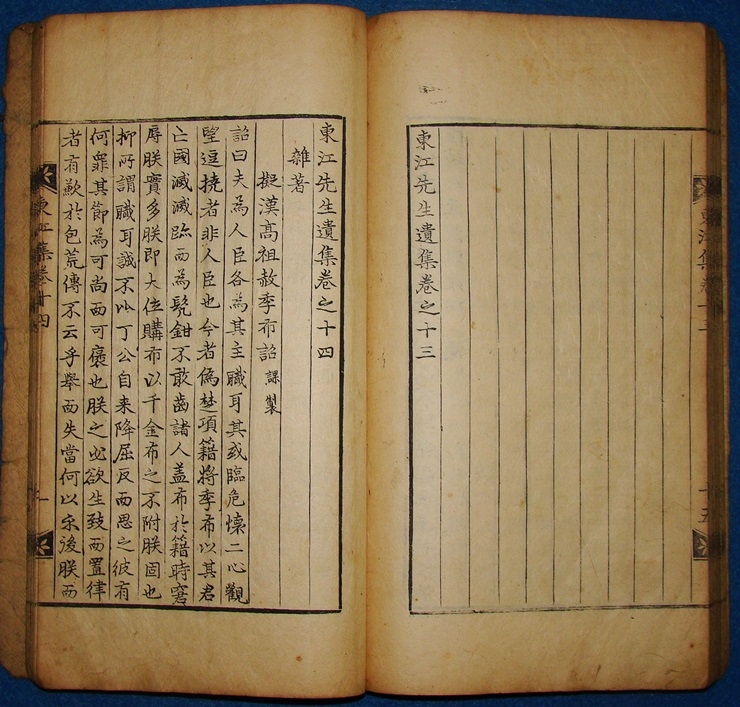 東江先生遺集卷之十三
東江先生遺集卷之十四
雜著
擬漢高祖赦季布詔 課製
詔曰夫為人臣各為其主職耳其或臨危懷二心觀
望逗撓者非人臣也今者偽楚項籍將季布以其君
亡國滅滅跡而為髡鉗不敢齒諸人盖布於籍時窘
辱朕實多朕即大位購布以千金布之不附朕固也
抑所謂職耳誠不以丁公自来降屈反而思之彼有
何罪其節為可尚而可褒也朕之必欲生致而置律
者有歉於包荒傳不云乎舉而失當何以示後朕而
東江集卷十四